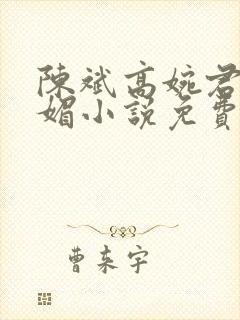 陳斌高婉君
媚小說免費
曹東宇